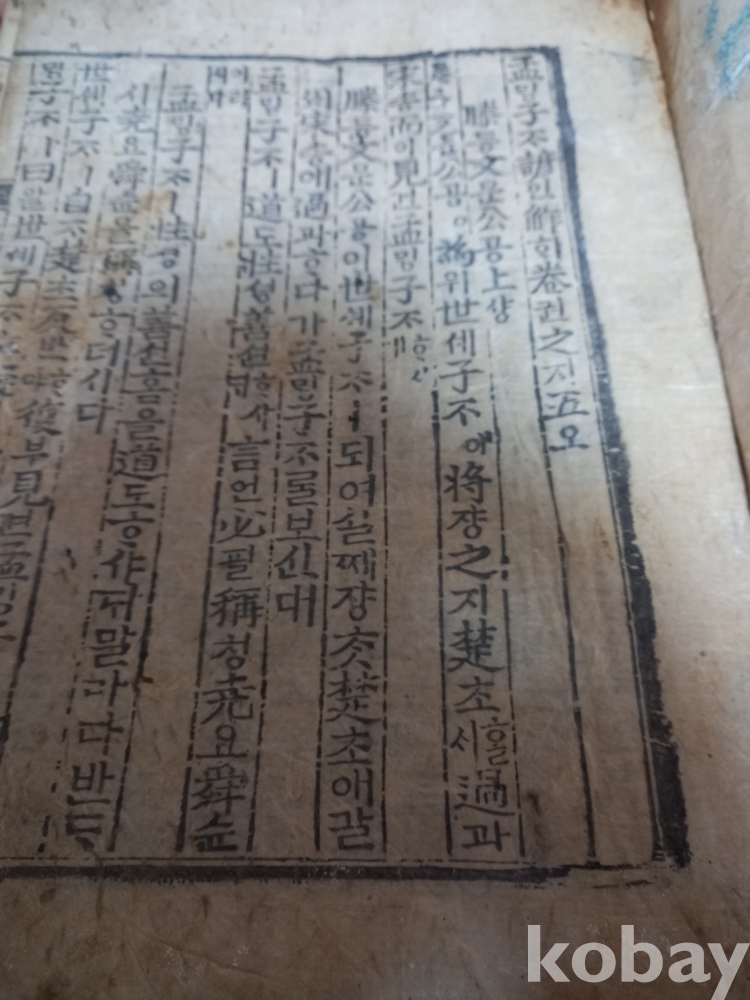 孟밍子ᄌᆞ諺언解ᄒᆡ卷권之지五오
滕등文문公공上샹
滕등文문公공이爲위世셰子ᄌᆞ애將쟝之지楚초ᄒᆞᆯ시過과
宋송而이見견孟밍子ᄌᆞ
滕등文문公공이世셰子ᄌᆞㅣ되여실제쟝ᄎᆞᆺ楚초애갈
宋송애過과ᄒᆞ다가孟밍子ᄌᆞᄅᆞᆯ보신대
孟밍子ᄌᆞㅣ道도性셩善션ᄒᆞ샤ᄃᆡ言언必필稱칭堯요舜슌
孟밍子ᄌᆞㅣ性셩의善션홈을道도ᄒᆞ샤ᄃᆡ말마다반ᄃᆞ
시堯요舜슌을稱칭ᄒᆞ더시다
世셰子ᄌᆞㅣ自ᄌᆞ楚초反반ᄒᆞ야復부見견孟밍
子ᄌᆞㅣ曰왈世셰子ᄌᆞ
kobay